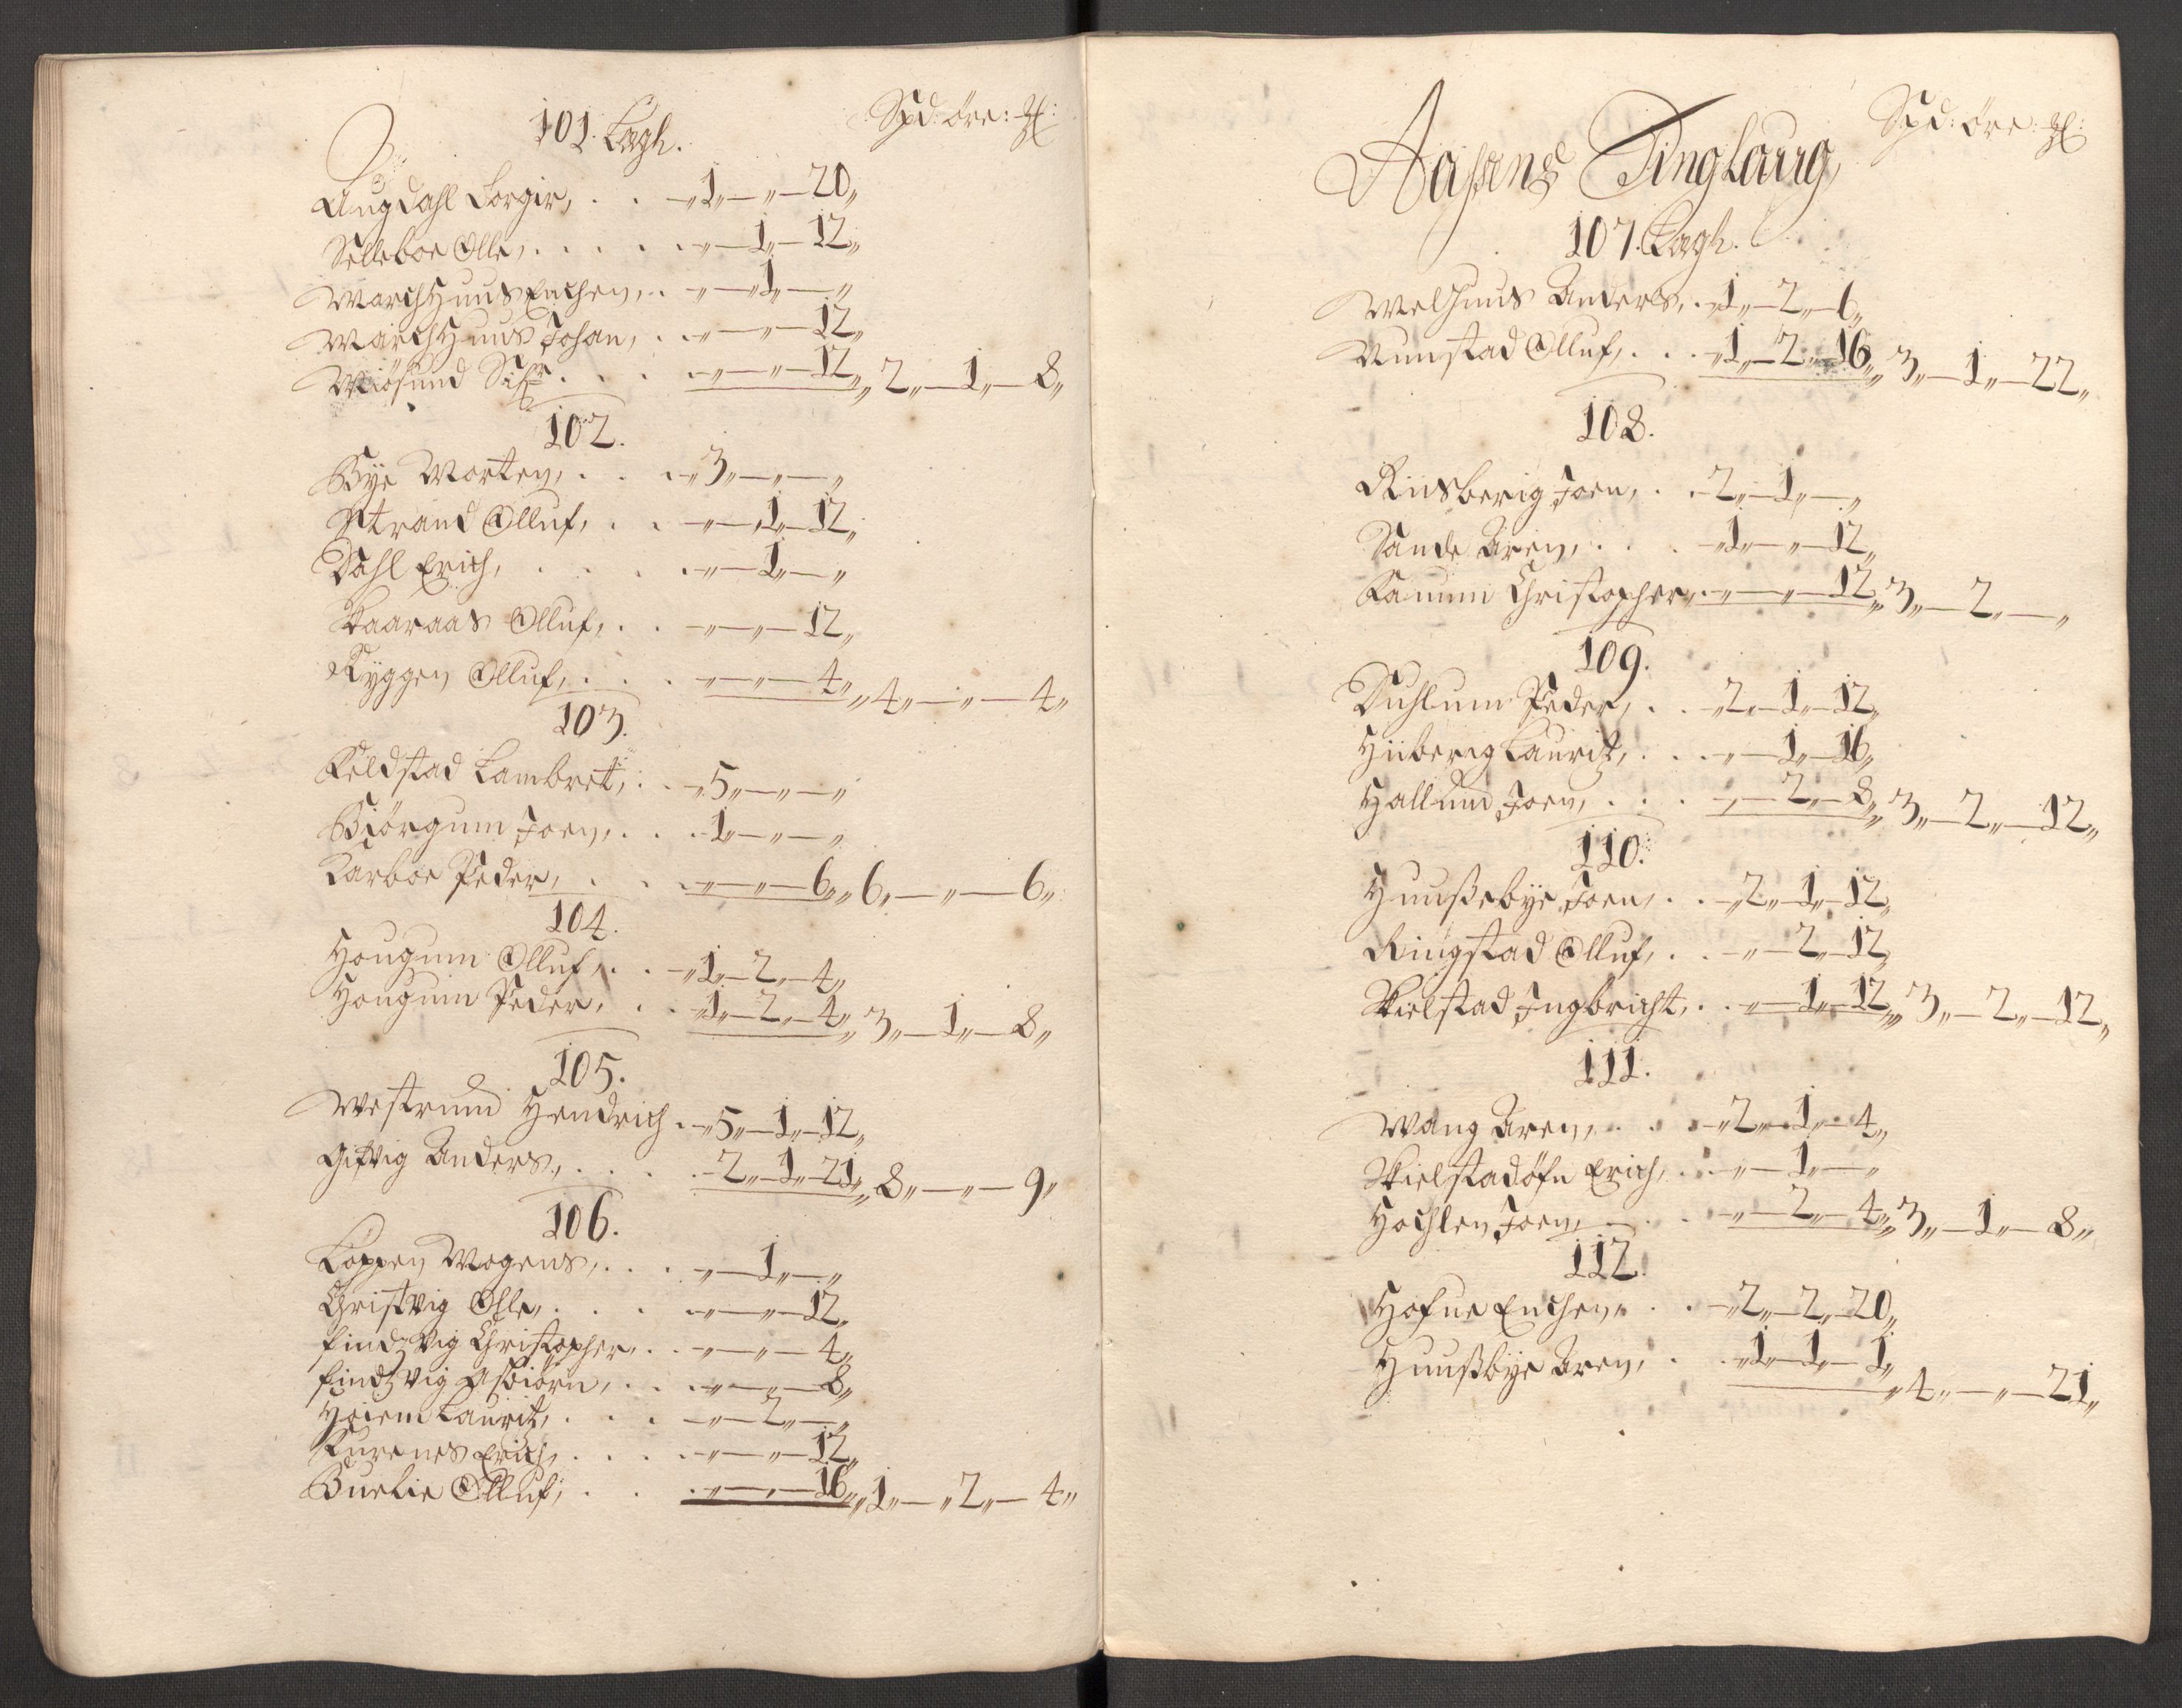 101. Lagh. Spd: öre: ##:
Augdahl Torgier, . . „1„—„—20„
Selleboe Olle, . . . . . „—1„—12„
Warchhuus Enchen, . . „—1„—„
Warchhuus Johan, . . „—„—12„
Miösund Sifr . . . . „—„—12„ „2„—1„—8„
102.
Bye Morten, . . . „3„—„—„
Strand Olluf, . . „—1„—12„
Dahl Erich, . . . . . „—1„—„
Kaaraas Olluf, . . „—„—12„
Ryggen Olluf, . . . „—„—4„ „4„—„—4„
103.
Feldstad Lambret, . . „5„—„—„
Biörgum Joen, . . . 1„—„—„
Karboe Peder, . . . „—„—6„ „6„—„—6„
104.
Hougum Olluf, . . „1„—2„—4„
Hougum Peder, . . „1„—2„—4„ „3„—1„—8„
105.
Westrum Hendrich . „5„—1„—12„
Giftvig Anders, . . . . 2„—1„—21„ „8„—„—9„
106.
Loppen Mogens, . . . „—1„—„
Christvig Ohle, . . . . „—„—12„
Findzvig Christopher, . . „—„—4„
Findzvig Asbiörn, . . . „—„—8„
Hoiem Lauritz, . . . „—2„—„
Kurenes Erich, . . . . „—„—12„
Buelie Olluf, . . . „—„—16„ „1„—„2„—4„
Aasens Tinglaug, Spd: öre: ##:
107. Lagh.
Welhuus Anders, . „1„—2„—6„
Nunstad Olluf, . . . „1„—2„—16„ „3„—1„—22„
108.
Rinsberig Joen, . . 2„—1„—„
Sande Aren, . . . „1„—„—12„
Fauum Christopher, . „—„—12„ „3„—2„—„
109.
Duhlum Peder, . . „2„—1„—12„
Hüberg Lauritz, . . . „—1„—16„
Hallum Joen, . . . „—2„—8„ „3„—2„—12„
110.
Huußebye Joen, . . „2„—1„—12„
Ringstad Olluf, . . „—2„—12„
Skielstad Ingbricht, . . „—1„—12„ „3„—2„—12„
111.
Wang Aren, . . . „2„—1„—4„
Skielstadöfn Erich, . . „—1„—„
Hochlen Joen, . . . „—2„—4„ „3„—1„—8„
112.
Hofue Enchen, . . „2„—2„—20„
Huußbye Aren, . . „1„—1„—1„
„4„—„—21„